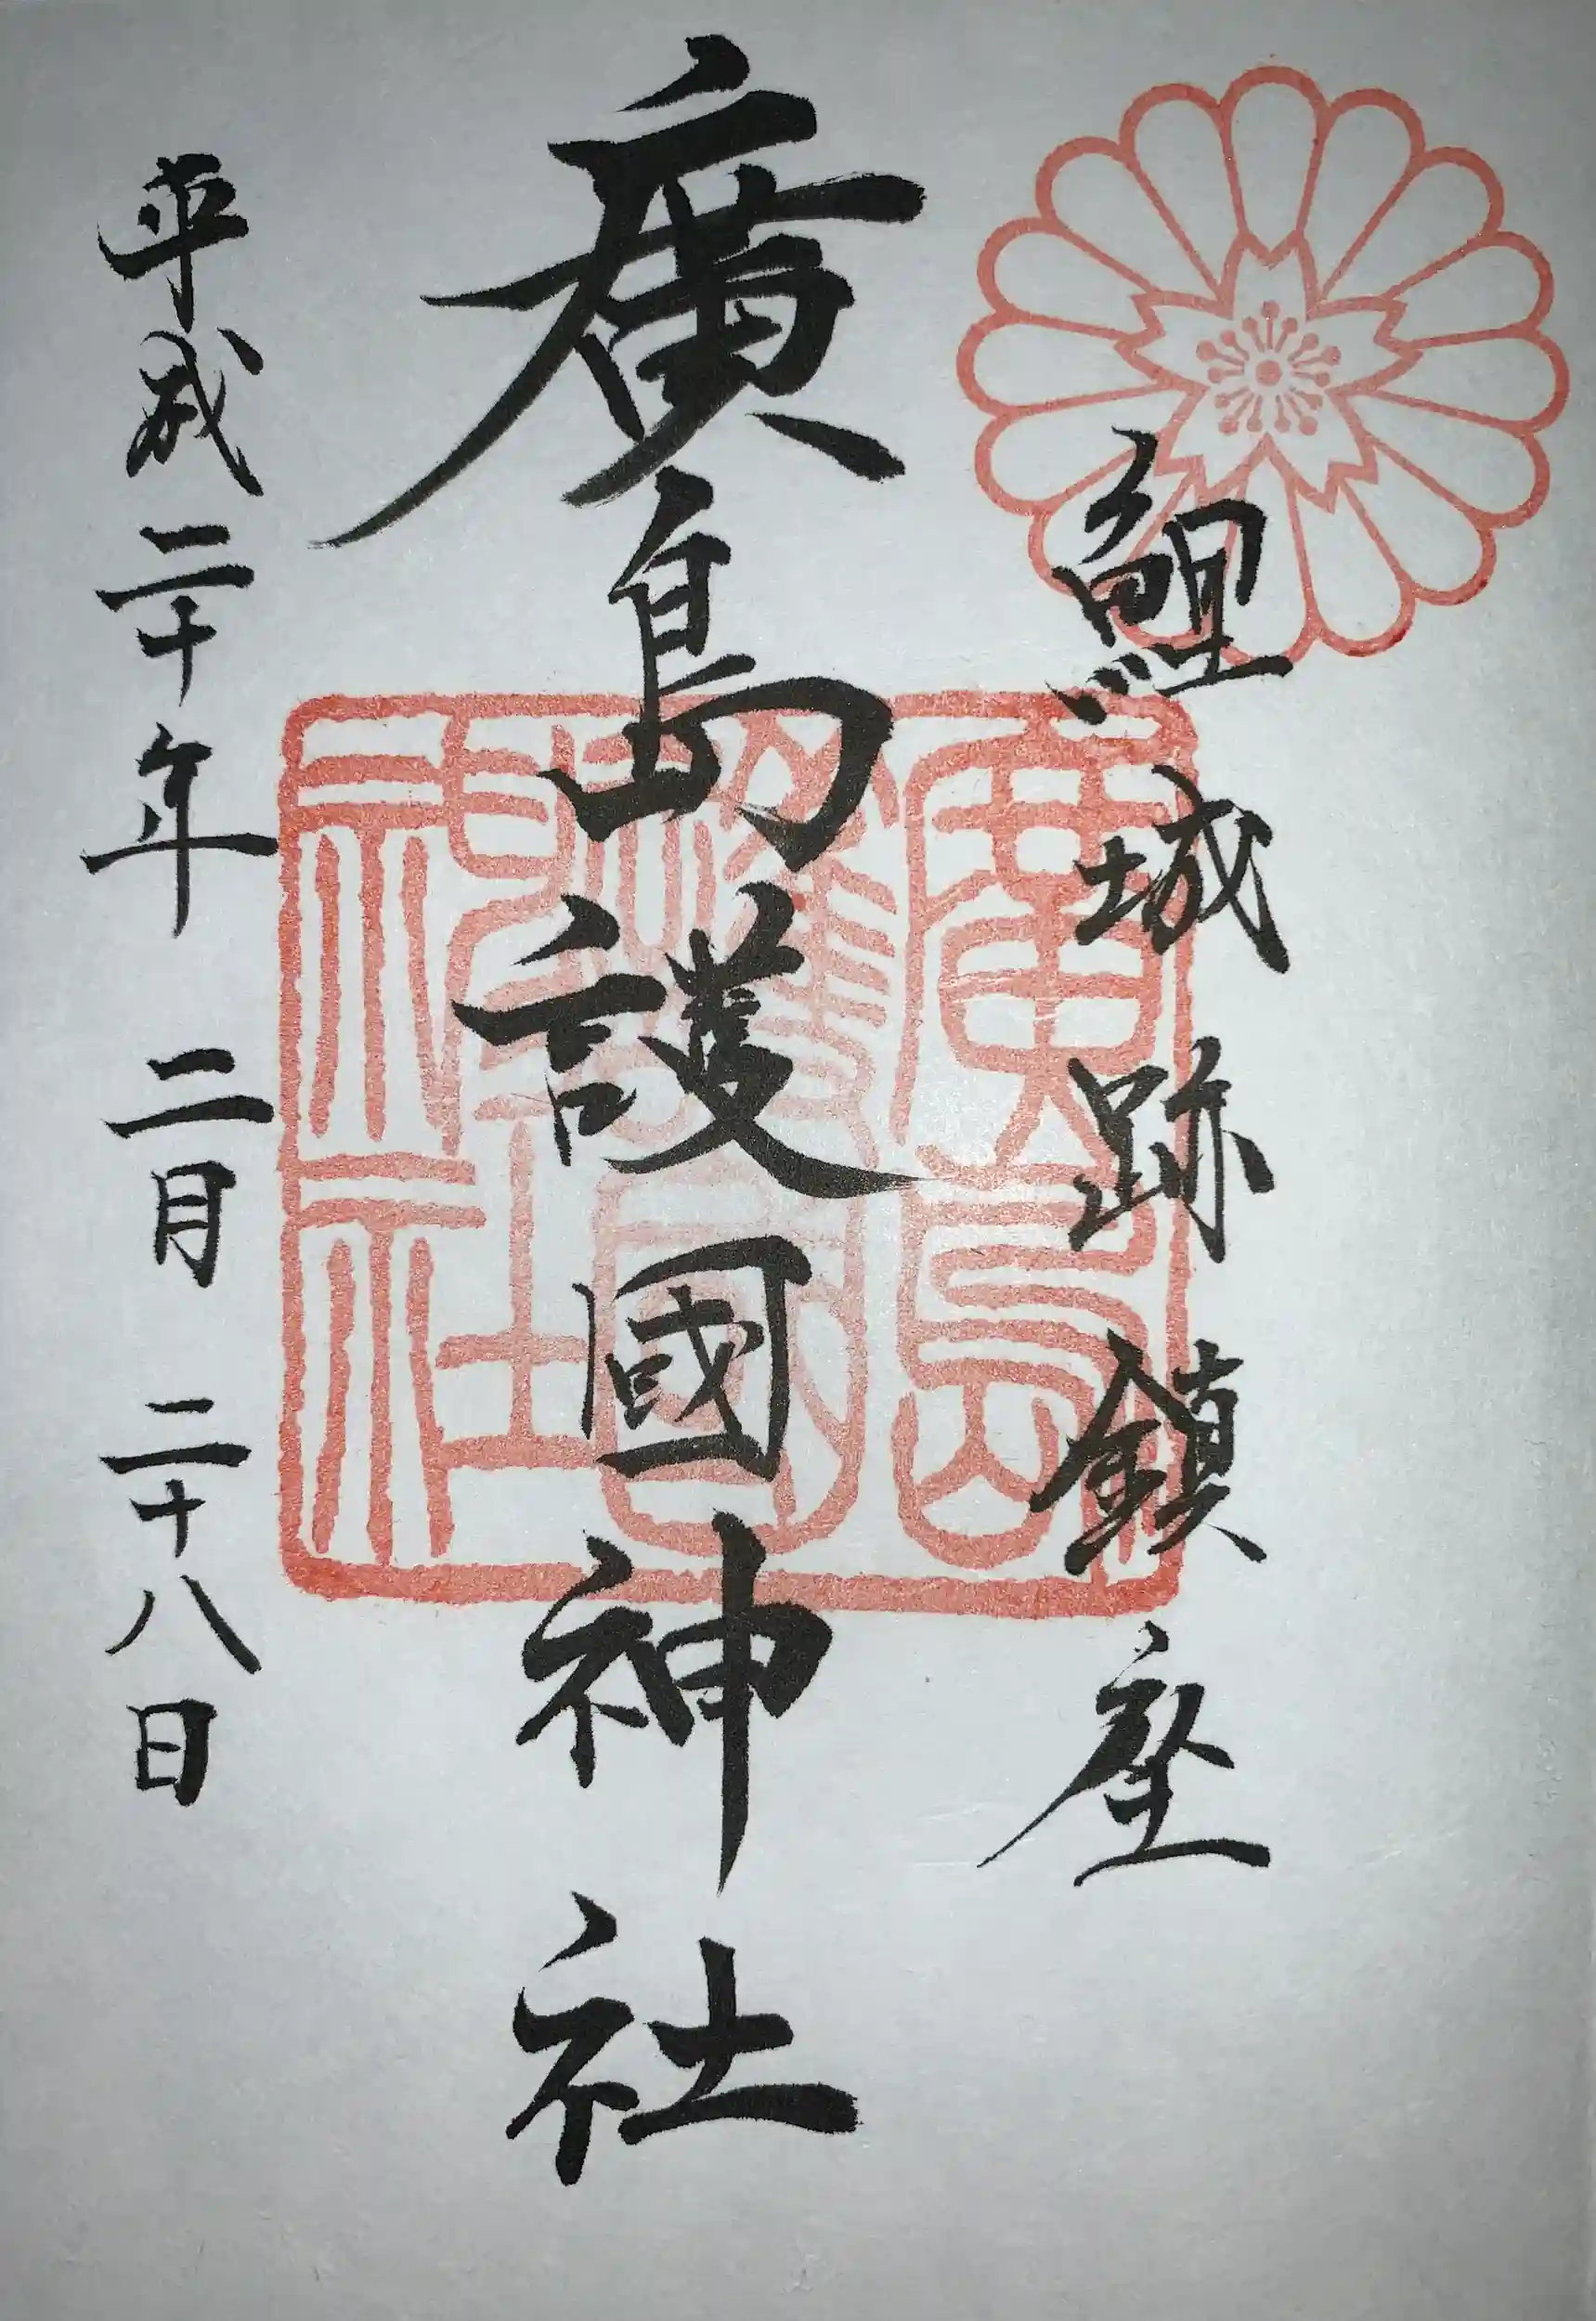 鯉城跡鎮座
廣島護國神社
廣島護國神社
平成二十年二月二十八日